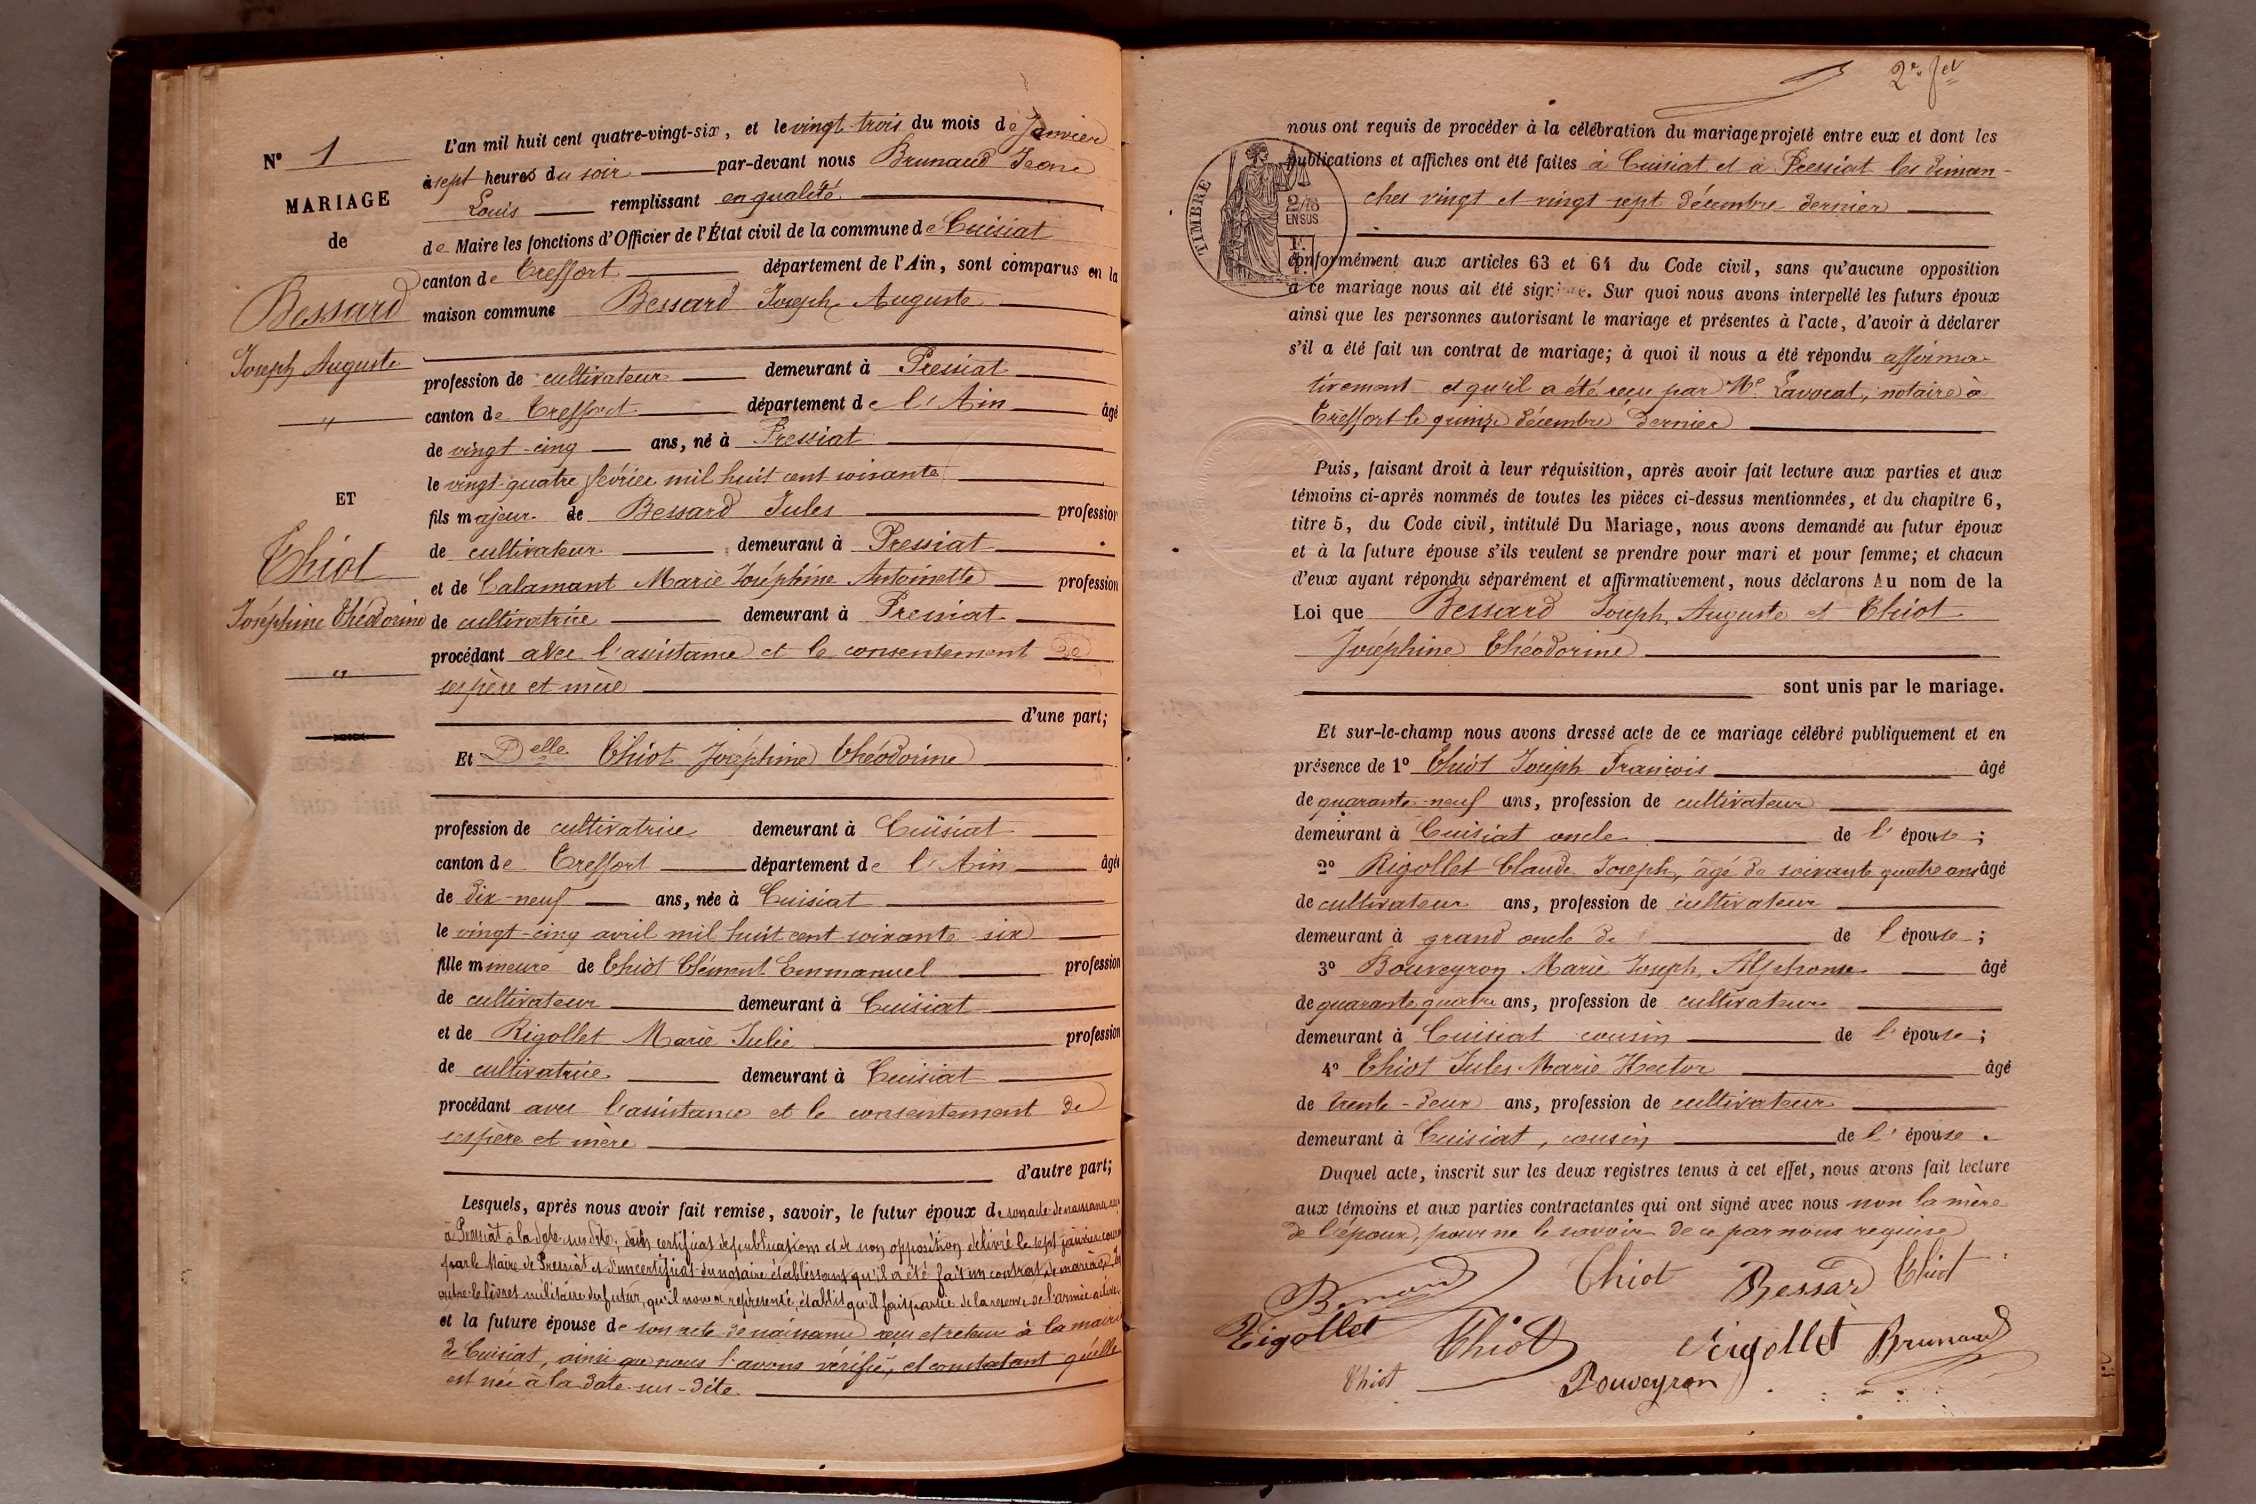 N° 1
MARIAGE
de
Bessard
Joseph Auguste
"
ET
Thiot
Joséphine Théodorine
"
L'an mil huit cent quatre-vingt-six, et le vingt-trois du mois de Janvier
à sept heures du soir par-devant nous Brunaud Jean
Louis remplissant en qualité
de Maire les fonctions d'Officier de l'État civil de la commune de Cuisiat
canton de Treffort département de l'Ain, sont comparus en la
maison commune Bessard Joseph Auguste
profession de cultivateur demeurant à Pressiat
canton de Treffort département de l'Ain âgé
de vingt-cinq ans, né à Pressiat
le vingt-quatre février mil huit cent soixante
fils majeur de Bessard Jules profession
de cultivateur demeurant à Pressiat
et de Calamant Marie Joséphine Antoinette profession
de cultivatrice demeurant à Pressiat
procédant avec l'assistance et le consentement de
ses père et mère
d'une part;
Et Delle Thiot Joséphine Théodorine
profession de cultivatrice demeurant à Cuisiat
canton de Treffort département de l'Ain âgée
de dix-neuf ans, née à Cuisiat
le vingt-cinq avril mil huit cent soixante six
fille mineure de Thiot Clément Emmanuel profession
de cultivateur demeurant à Cuisiat
et de Rigollet Marie Julie profession
de cultivatrice demeurant à Cuisiat
procédant avec l'assistance et le consentement de
ses père et mère
d'autre part;
Lesquels, après nous avoir fait remise, savoir, le futur époux de son acte de naissance
à Pressiat à la date sus dite, d'un certificat de publications et de non opposition délivré le sept janvier courant
par le Maire de Pressiat et d'un certificat du notaire établissant qu'il a été fait un contrat de mariage
outre le livret militaire du futur, qu'il nous a représenté, établit qu'il fait partie de la réserve de l'armée active
et la future épouse de son acte de naissance reçu et retenu à la mairie
de Cuisiat, ainsi que nous l'avons vérifié, et constatant qu'elle
est née à la date sus-dite.
2e fet
nous ont requis de procéder à la célébration du mariage projeté entre eux et dont les
publications et affiches ont été faites à Cuisiat et à Pressiat les diman-
ches vingt et vingt-sept décembre dernier
TIMBRE
2/10
EN SUS
conformément aux articles 63 et 64 du Code civil, sans qu'aucune opposition
à ce mariage nous ait été signifiée. Sur quoi nous avons interpellé les futurs époux
ainsi que les personnes autorisant le mariage et présentes à l'acte, d'avoir à déclarer
s'il a été fait un contrat de mariage; à quoi il nous a été répondu affirma-
tivement et qu'il a été reçu par Me Lavocat, notaire à
Treffort le quinze décembre dernier
Puis, faisant droit à leur réquisition, après avoir fait lecture aux parties et aux
témoins ci-après nommés de toutes les pièces ci-dessus mentionnées, et du chapitre 6,
titre 5, du Code civil, intitulé Du Mariage, nous avons demandé au futur époux
et à la future épouse s'ils veulent se prendre pour mari et pour femme; et chacun
d'eux ayant répondu séparément et affirmativement, nous déclarons Au nom de la
Loi que Bessard Joseph Auguste et Thiot
Joséphine Théodorine
sont unis par le mariage.
Et sur-le-champ nous avons dressé acte de ce mariage célébré publiquement et en
présence de 1° Thiot Joseph François âgé
de quarante-neuf ans, profession de cultivateur
demeurant à Cuisiat oncle de l'épouse;
2° Rigollet Claude Joseph, âgé de soixante quatre ans âgé
de cultivateur ans, profession de cultivateur
demeurant à grand oncle de de l'épouse;
3° Bouveyron Marie Joseph Alphonse âgé
de quarante quatre ans, profession de cultivateur
demeurant à Cuisiat cousin de l'épouse;
4° Thiot Jules Marie Hector âgé
de trente-deux ans, profession de cultivateur
demeurant à Cuisiat, cousin de l'épouse.
Duquel acte, inscrit sur les deux registres tenus à cet effet, nous avons fait lecture
aux témoins et aux parties contractantes qui ont signé avec nous non la mère
de l'époux, pour ne le savoir de ce par nous requise
Thiot Bessard Thiot
Rigollet Thiot Rigollet Brunaud
Thiot Bouveyron